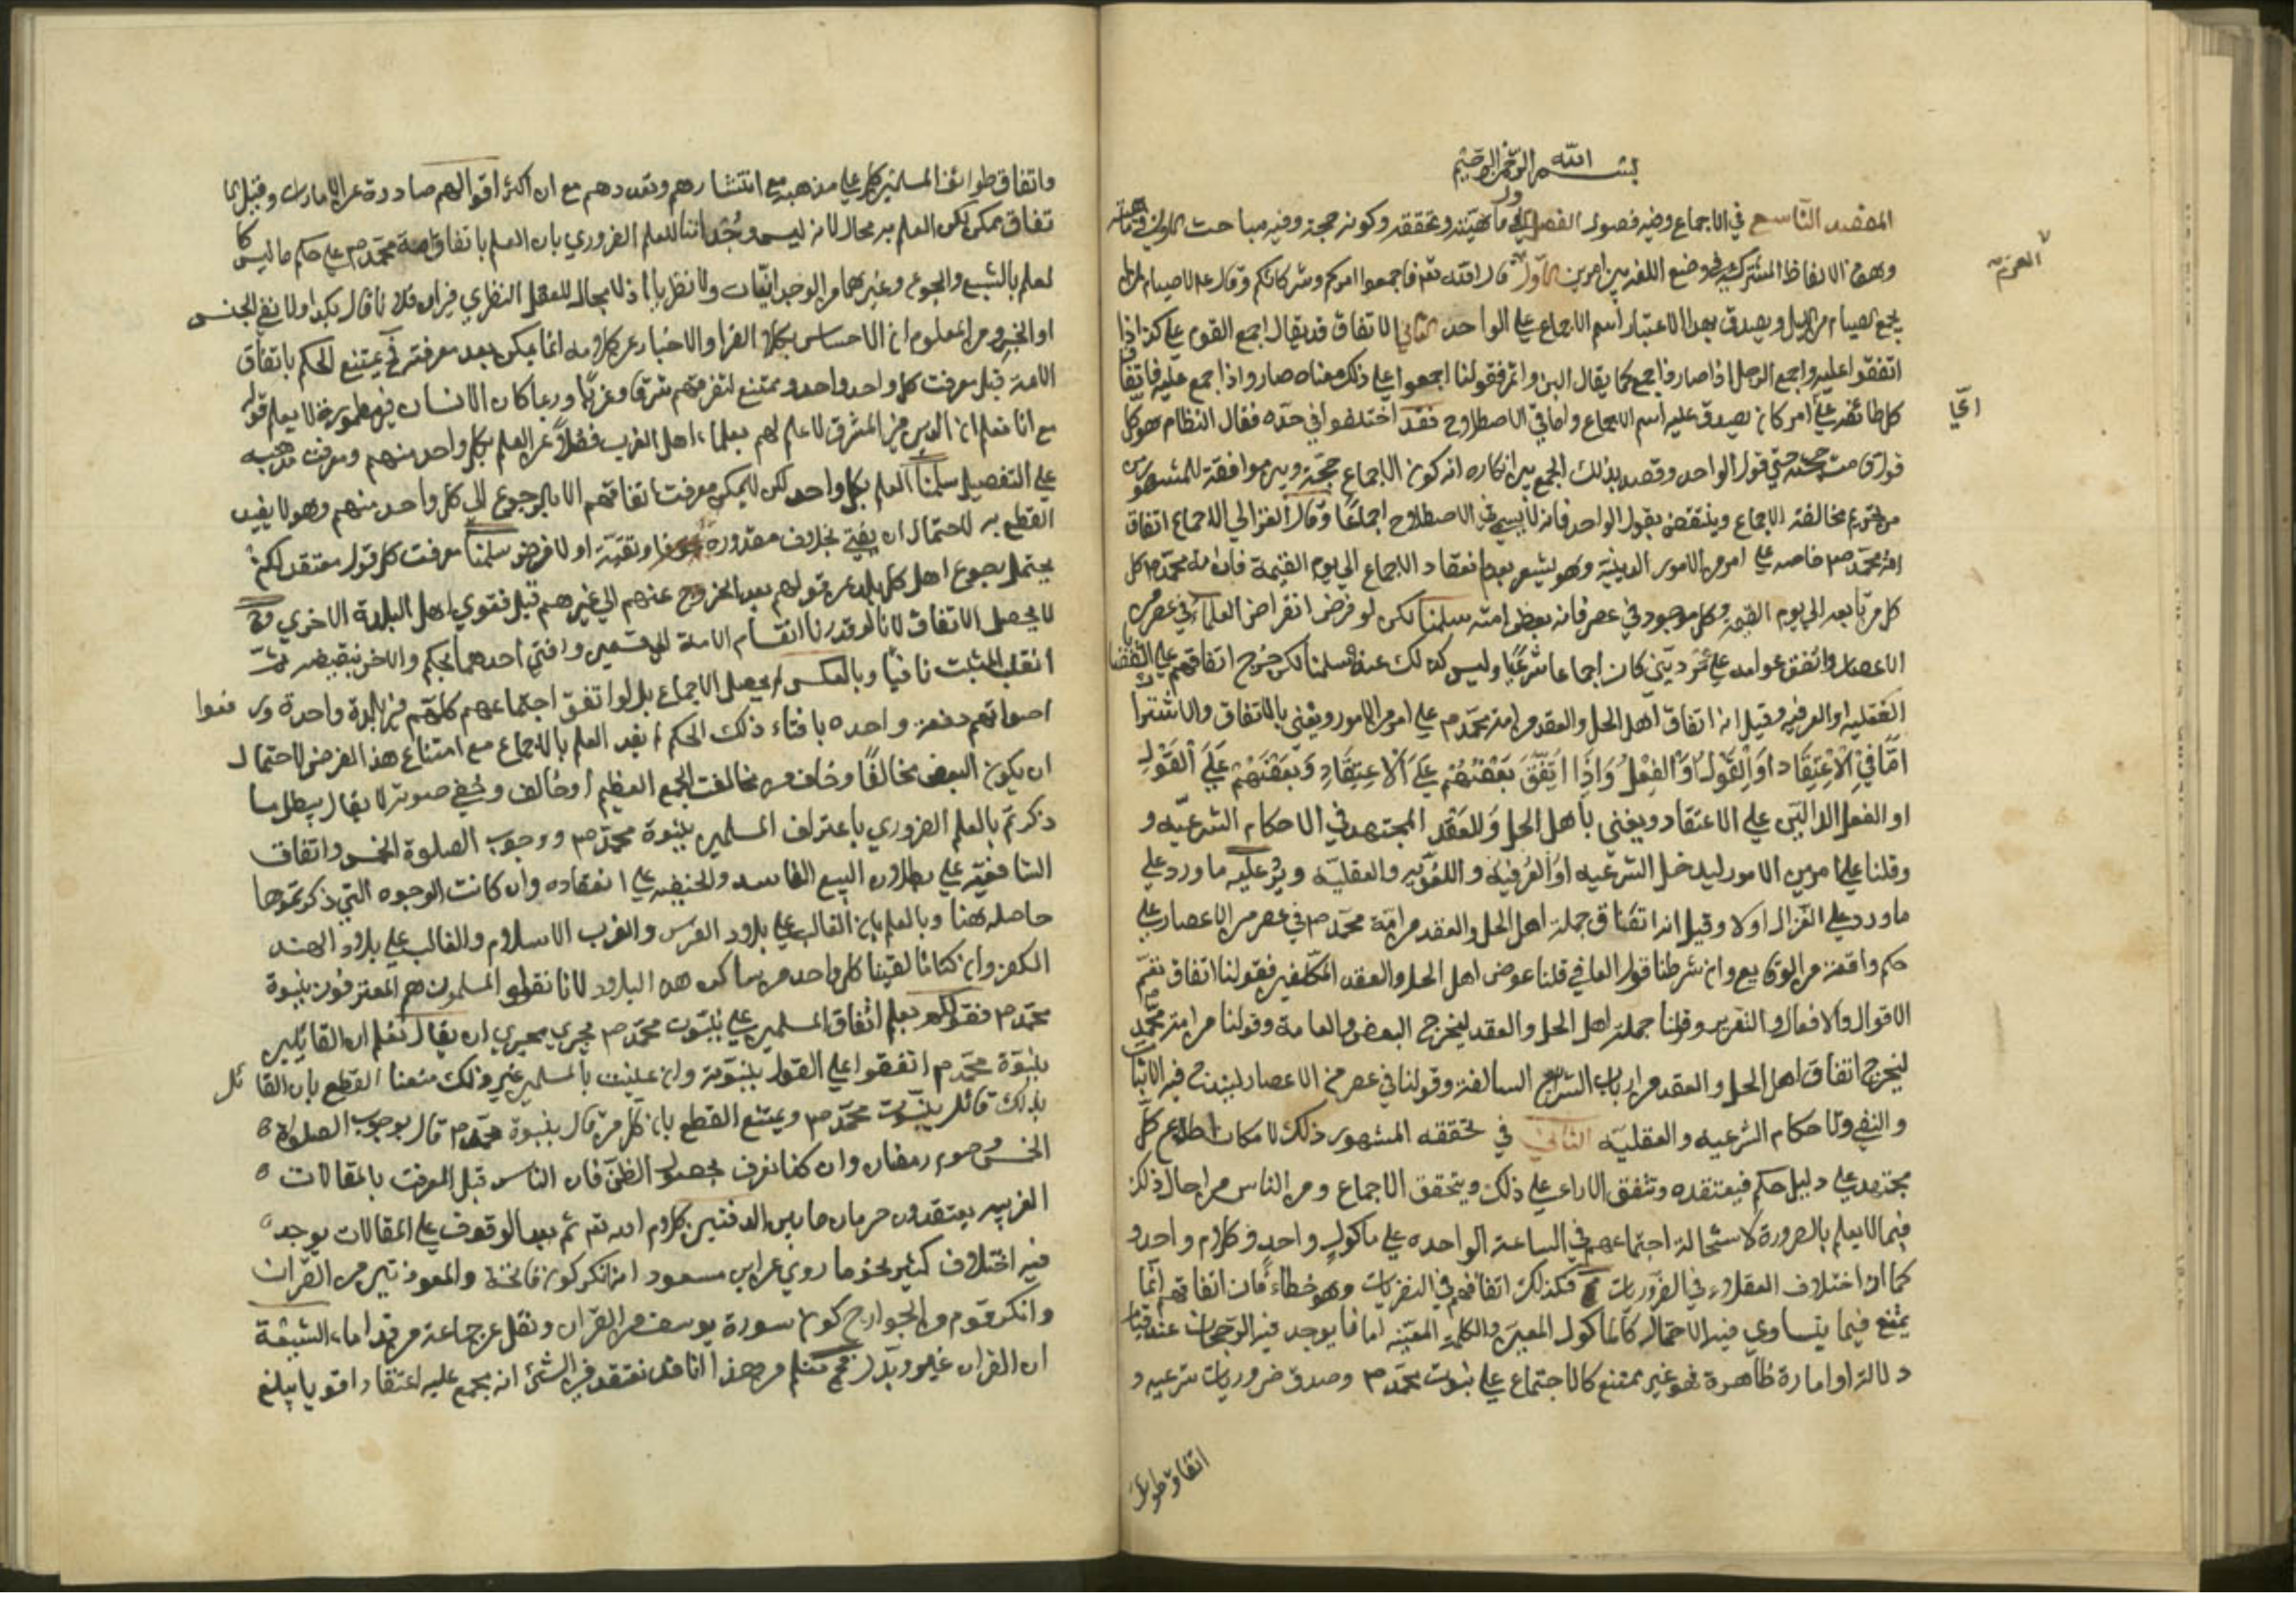 بسم الله الرحمن الرحيم
المقصد التاسع في الاجماع وفيه فصول الفصل الاول في ماهيته وتحققه وكونه حجة وفيه مباحث الاول في ماهيته
وهو من الالفاظ المشتركة في وضع اللغة بين امرين الاول قال الله تعم فاجمعوا امركم وشركائكم وقال عم لا صيام لمن لم
يجمع الصيام من الليل ويصدق بهذا الاعتبار اسم الاجماع على الواحد الثاني الاتفاق قد يقال اجمع القوم على كذا اذا
اتفقوا عليه واجمع الرجل اذا صار ذا جمع كما يقال البن واتمر فقولنا اجمعوا على ذلك معناه صاروا ذا جمع عليه فاتفاق
كل طائفة على امر كان يصدق عليه اسم الاجماع واما في الاصطلاح فقد اختلفوا في حده فقال النظام هو كل
قول قامت حجته حتى قول الواحد وقصد بذلك الجمع بين انكاره كون الاجماع حجة وبين موافقة للمشهور
من تحريم مخالفة الاجماع وينتقض بقول الواحد فانه لا يسمى في الاصطلاح اجماعا وقال الغزالي الاجماع اتفاق
امة محمد ص خاصه على امر من الامور الدينية وهو يشعر بعدم انعقاد الاجماع الى يوم القيمة فان امة محمد ص كل
من تابعه الى يوم القيمة وكل موجود في عصر فانه بعض امته سلمنا لكن لو فرض انقراض العلماء في عصر من
الاعصار واتفق عوامه على امر ديني كان اجماعا شرعيا وليس كذلك عنده سلمنا لكن خرج اتفاقهم على القضايا
العقلية او العرفية وقيل انه اتفاق اهل الحل والعقد من امة محمد ص على امر من الامور ويعني بالاتفاق والاشتراك
اما في الاعتقاد او القول او الفعل واذا اتفق بعضهم على الاعتقاد وبعضهم على القول
او الفعل الدالين على الاعتقاد ويعني باهل الحل والعقد المجتهد في الاحكام الشرعية و
وقلنا على امر من الامور ليدخل الشرعيه او العرفية واللغوية والعقلية ويرد عليه ما ورد على
ما ورد على الغزالي اولا وقيل انه اتفاق جملة اهل الحل والعقد من امة محمد ص في عصر من الاعصار على
حكم واقعة من الوقايع وان شرطنا قول العامي قلنا عوض اهل الحل والعقد المكلفين فقولنا اتفاق تعم
الاقوال والافعال والتقرير وقلنا جملة اهل الحل والعقد ليخرج البعض والعامة وقولنا من امة محمد
ليخرج اتفاق اهل الحل والعقد من ارباب الشرايع السالفة وقولنا في عصر من الاعصار ليندرج فيه الاثبات
والنفي والاحكام الشرعيه والعقلية الثاني في تحققه المشهور ذلك لامكان اطلاع كل
مجتهد على دليل حكم فيعتقده وتتفق الاراء على ذلك ويتحقق الاجماع ومن الناس من احال ذلك
فيما لا يعلم بالضرورة لاستحالة اجتماعهم في الساعة الواحدة على ماكول واحد وكلام واحد و
كما ان اختلاف العقلاء في الضروريات فكذلك اتفاقهم في النظريات وهو خطاء فان اتفاقهم انما
يمتنع فيما يتساوى فيه الاحتمال كالماكول المعين والكلمة المعينة اما ما يوجد فيه الرجحان عند قيام
دلالة او امارة ظاهرة فهو غير ممتنع كالاجتماع على نبوت محمد ص وصدق ضروريات شرعيه و
اتفاق طوائف
واتفاق طوائف المسلمين كل على مذهبه مع انتشارهم وتعددهم مع ان اكثر اقوالهم صادرة عن الامارات وقيل الا
تفاق ممكن لكن العلم به محال لانه ليس وجدانيا للعلم الضروري بان العلم باتفاق امة محمد ص على حكم ما ليس كا
لعلم بالشبع والجوع وغيرهما من الوجدانيات ولا نظريا اذ لا مجال للعقل النظري في ان فلانا قال بكذا ولا نفع الحس
او الخبر ومن المعلوم ان الاحساس بكلام الغير او الاخبار عن كلامه انما يمكن بعد معرفته فح يمتنع الحكم باتفاق
الامة قبل معرفت كل واحد واحد وممتنع لتفرقهم شرقا وغربا وربما كان الانسان في مطمورة لا يعلم قوله
مع انا نعلم ان الذين في المشرق لا علم لهم بعلماء اهل الغرب فضلا عن العلم بكل واحد منهم ومعرفت مذهبه
على التفصيل سلمنا العلم بكل واحد لكن لا يمكن معرفت اتفاقهم الا بالرجوع الى كل واحد منهم وهو لا يفيد
القطع به لاحتمال ان يفتي بخلاف معتقده وتقية او لا فرض سلمنا معرفت كل قول معتقد لكن
يحتمل رجوع اهل كل بلد عن قولهم بعد الخروج عنهم الى غيرهم قبل فتوى اهل البلدة الاخرى وح
لا يحصل الاتفاق لانا لو قدرنا انقسام الامة الى قسمين وافتى احدهما بحكم والاخر بنقيضه ثم
انقلب المثبت نافيا وبالعكس لم يحصل الاجماع بل لو اتفق اجتماعهم كلهم في بلدة واحدة ورفعوا
اصواتهم دفعة واحده بافتاء ذلك الحكم لم يفد العلم بالاجماع مع امتناع هذا الفرض لاحتمال
ان يكون البعض مخالفا وخاف من مخالفت الجمع العظيم او خالف وخفي صوته لا يقال يبطل ما
ذكرتم بالعلم الضروري باعتراف المسلمين بنبوة محمد ص ووجوب الصلوة الخمس واتفاق
الشافعية على بطلان البيع الفاسد والحنيفيه على انعقاده وان كانت الوجوه التي ذكرتموها
حاصله هنا وبالعلم بان الغالب على بلاد الفرس والغرب الاسلام والغالب على بلاد الهند
الكفر وان كنا ما لقينا كل واحد من ساكني هذه البلاد لانا نقول المسلمون هم المعترفون بنبوة
محمد ص فقولكم نعلم اتفاق المسلمين على نبوت محمد ص يجري مجرى ان يقال نعلم ان القائلين
بنبوة محمد ص اتفقوا على القول بنبوته وان عنيت بالمسلمين غير ذلك منعنا القطع بان القائل
بذلك قائل بنبوت محمد ص ويمتنع القطع بان كل من قال بنبوة محمد ص قال بوجوب الصلوة
الخمس وصوم رمضان وان كنا نعرف بحصول الظن فان الناس قبل المعرفت بالمقالات
الغريبه يعتقدون حرمان ما بين الدفتين كلام الله تعم ثم بعد الوقوف على المقالات يوجد
فيه اختلاف كثير نحو ما روي عن ابن مسعود انه انكر كون فاتحة والمعوذتين من القران
وانكر قوم من الخوارج كون سورة يوسف من القران ونقل عن جماعة من قدماء الشيعة
ان القران غير وبدل فح نعلم من هذا انا قد نعتقد في الشئ انه مجمع عليه اعتقادا قويا يبلغ